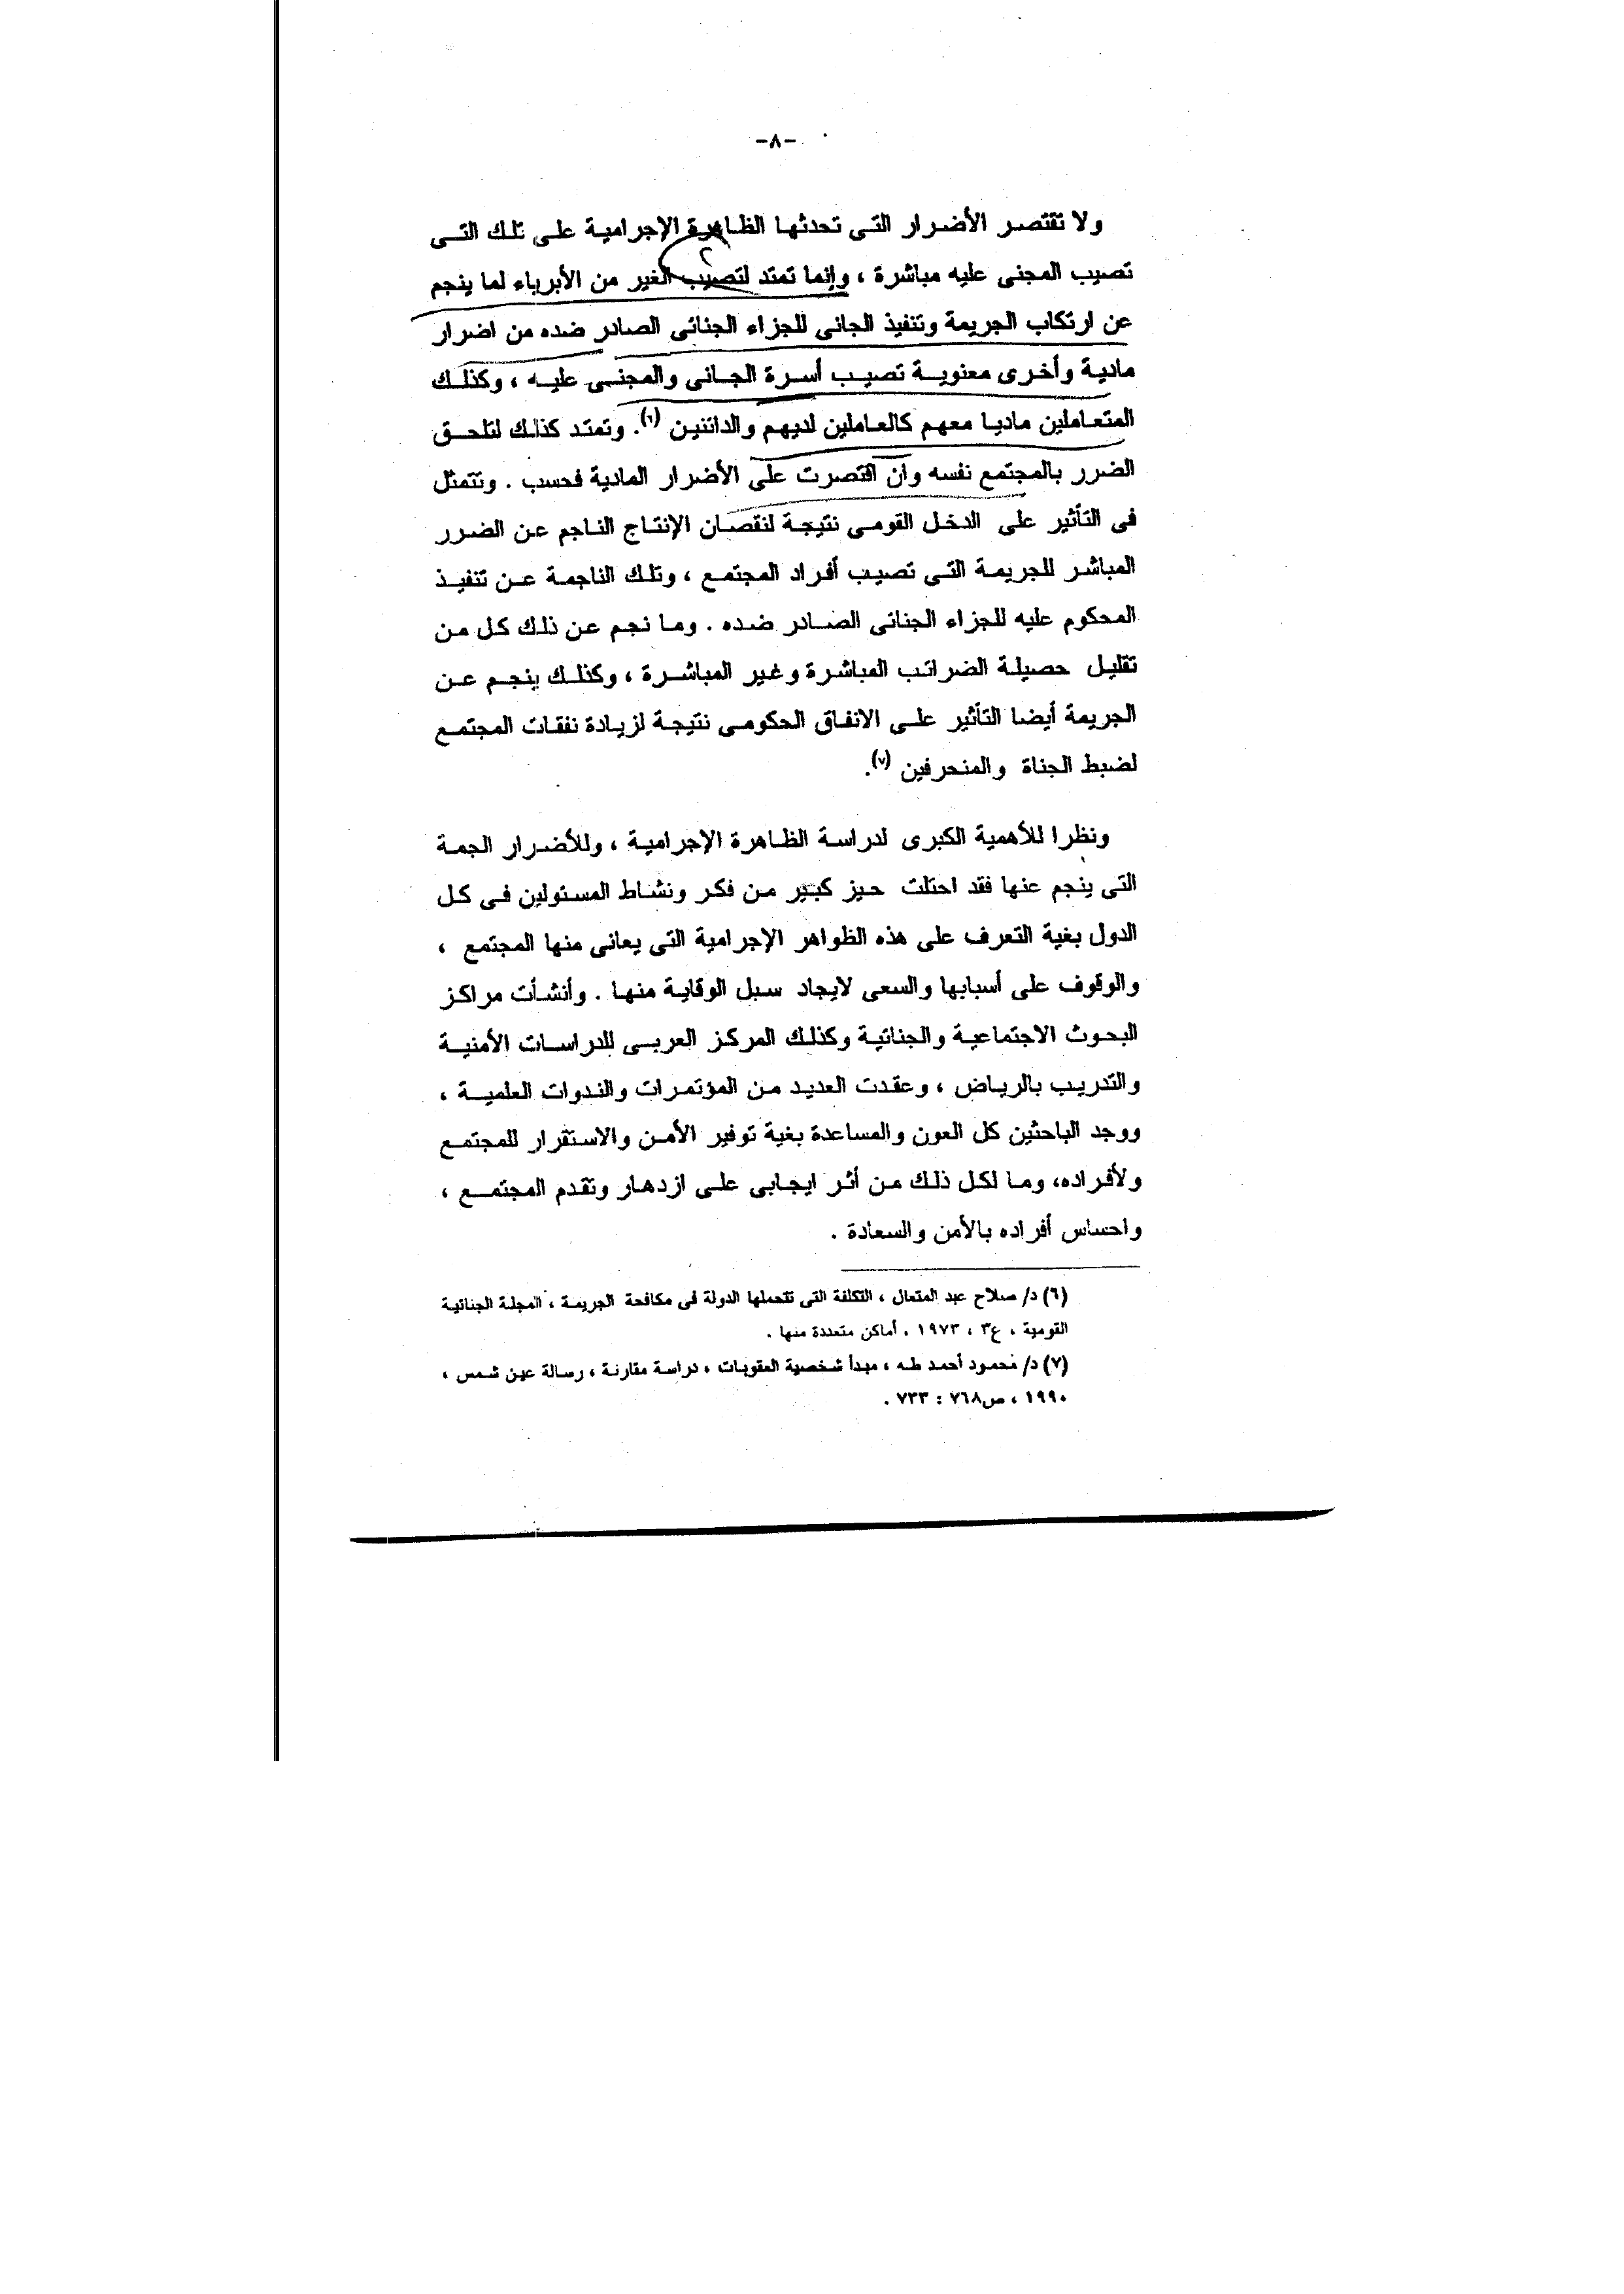 -٨-
ولا تقتصر الأضرار التى تحدثها الظاهرة الإجرامية على تلك التى
تصيب المجنى عليه مباشرة ، وإنما تمتد لتصيب الغير من الأبرياء لما ينجم
عن ارتكاب الجريمة وتنفيذ الجانى للجزاء الجنائى الصادر ضده من اضرار
مادية وأخرى معنوية تصيب أسرة الجانى والمجنى عليه ، وكذلك
المتعاملين ماديا معهم كالعاملين لديهم والدائنين (٦). وتمتد كذلك لتلحق
الضرر بالمجتمع نفسه وان اقتصرت على الأضرار المادية فحسب . وتتمثل
فى التأثير على الدخل القومى نتيجة لنقصان الإنتاج الناجم عن الضرر
المباشر للجريمة التى تصيب أفراد المجتمع ، وتلك الناجمة عن تنفيذ
المحكوم عليه للجزاء الجنائى الصادر ضده . وما نجم عن ذلك كل من
تقليل حصيلة الضرائب المباشرة وغير المباشرة ، وكذلك ينجم عن
الجريمة أيضا التأثير على الانفاق الحكومى نتيجة لزيادة نفقات المجتمع
لضبط الجناة والمنحرفين (٧).
ونظرا للأهمية الكبرى لدراسة الظاهرة الإجرامية ، وللأضرار الجمة
التى ينجم عنها فقد احتلت حيز كبير من فكر ونشاط المسئولين فى كل
الدول بغية التعرف على هذه الظواهر الإجرامية التى يعانى منها المجتمع ،
والوقوف على أسبابها والسعى لايجاد سبل الوقاية منها . وأنشأت مراكز
البحوث الاجتماعية والجنائية وكذلك المركز العربى للدراسات الأمنية
والتدريب بالرياض ، وعقدت العديد من المؤتمرات والندوات العلمية ،
ووجد الباحثين كل العون والمساعدة بغية توفير الأمن والاستقرار للمجتمع
ولأفراده، وما لكل ذلك من أثر ايجابى على ازدهار وتقدم المجتمع ،
واحساس أفراده بالأمن والسعادة .
(٦) د/ صلاح عبد المتعال ، التكلفة التى تتحملها الدولة فى مكافحة الجريمة ، المجلة الجنائية
القومية ، ع٣ ، ١٩٧٣ ، أماكن متعددة منها .
(٧) د/ محمود أحمد طه ، مبدأ شخصية العقوبات ، دراسة مقارنة ، رسالة عين شمس ،
١٩٩٠ ، ص٧٦٨ : ٧٣٣ .